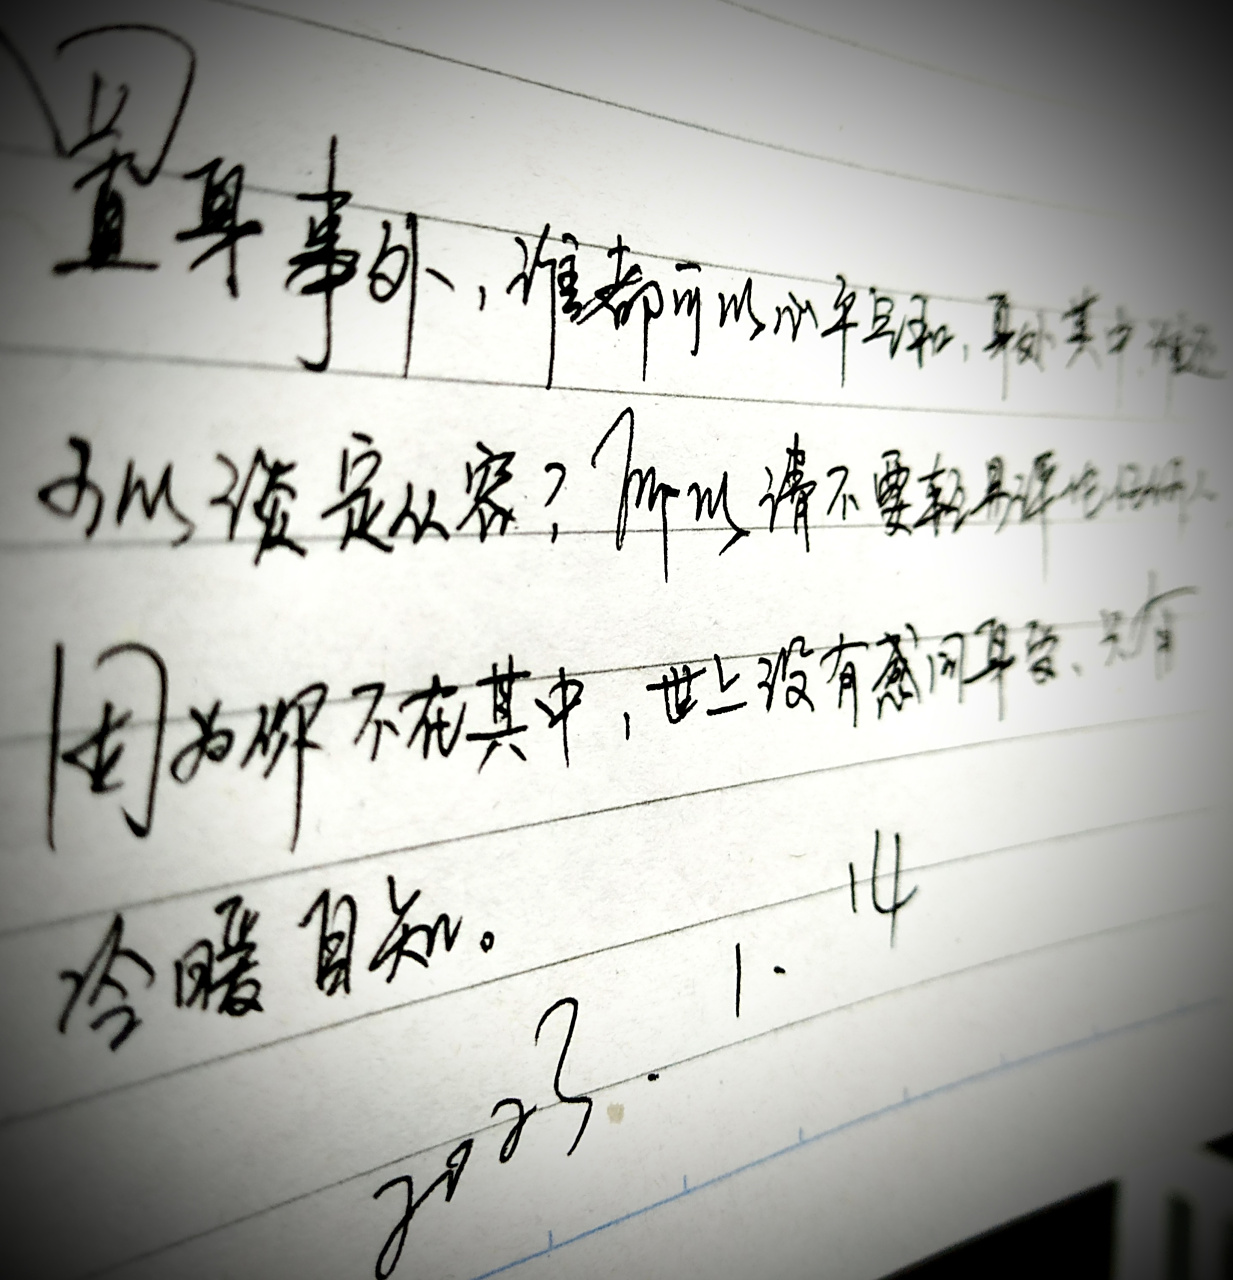 置身事外，谁都可以心平气和，身处其中，谁还
可以淡定从容？所以请不要轻易评论任何人
因为你不在其中，世上没有感同身受、只有
冷暖自知。
2023.1.14